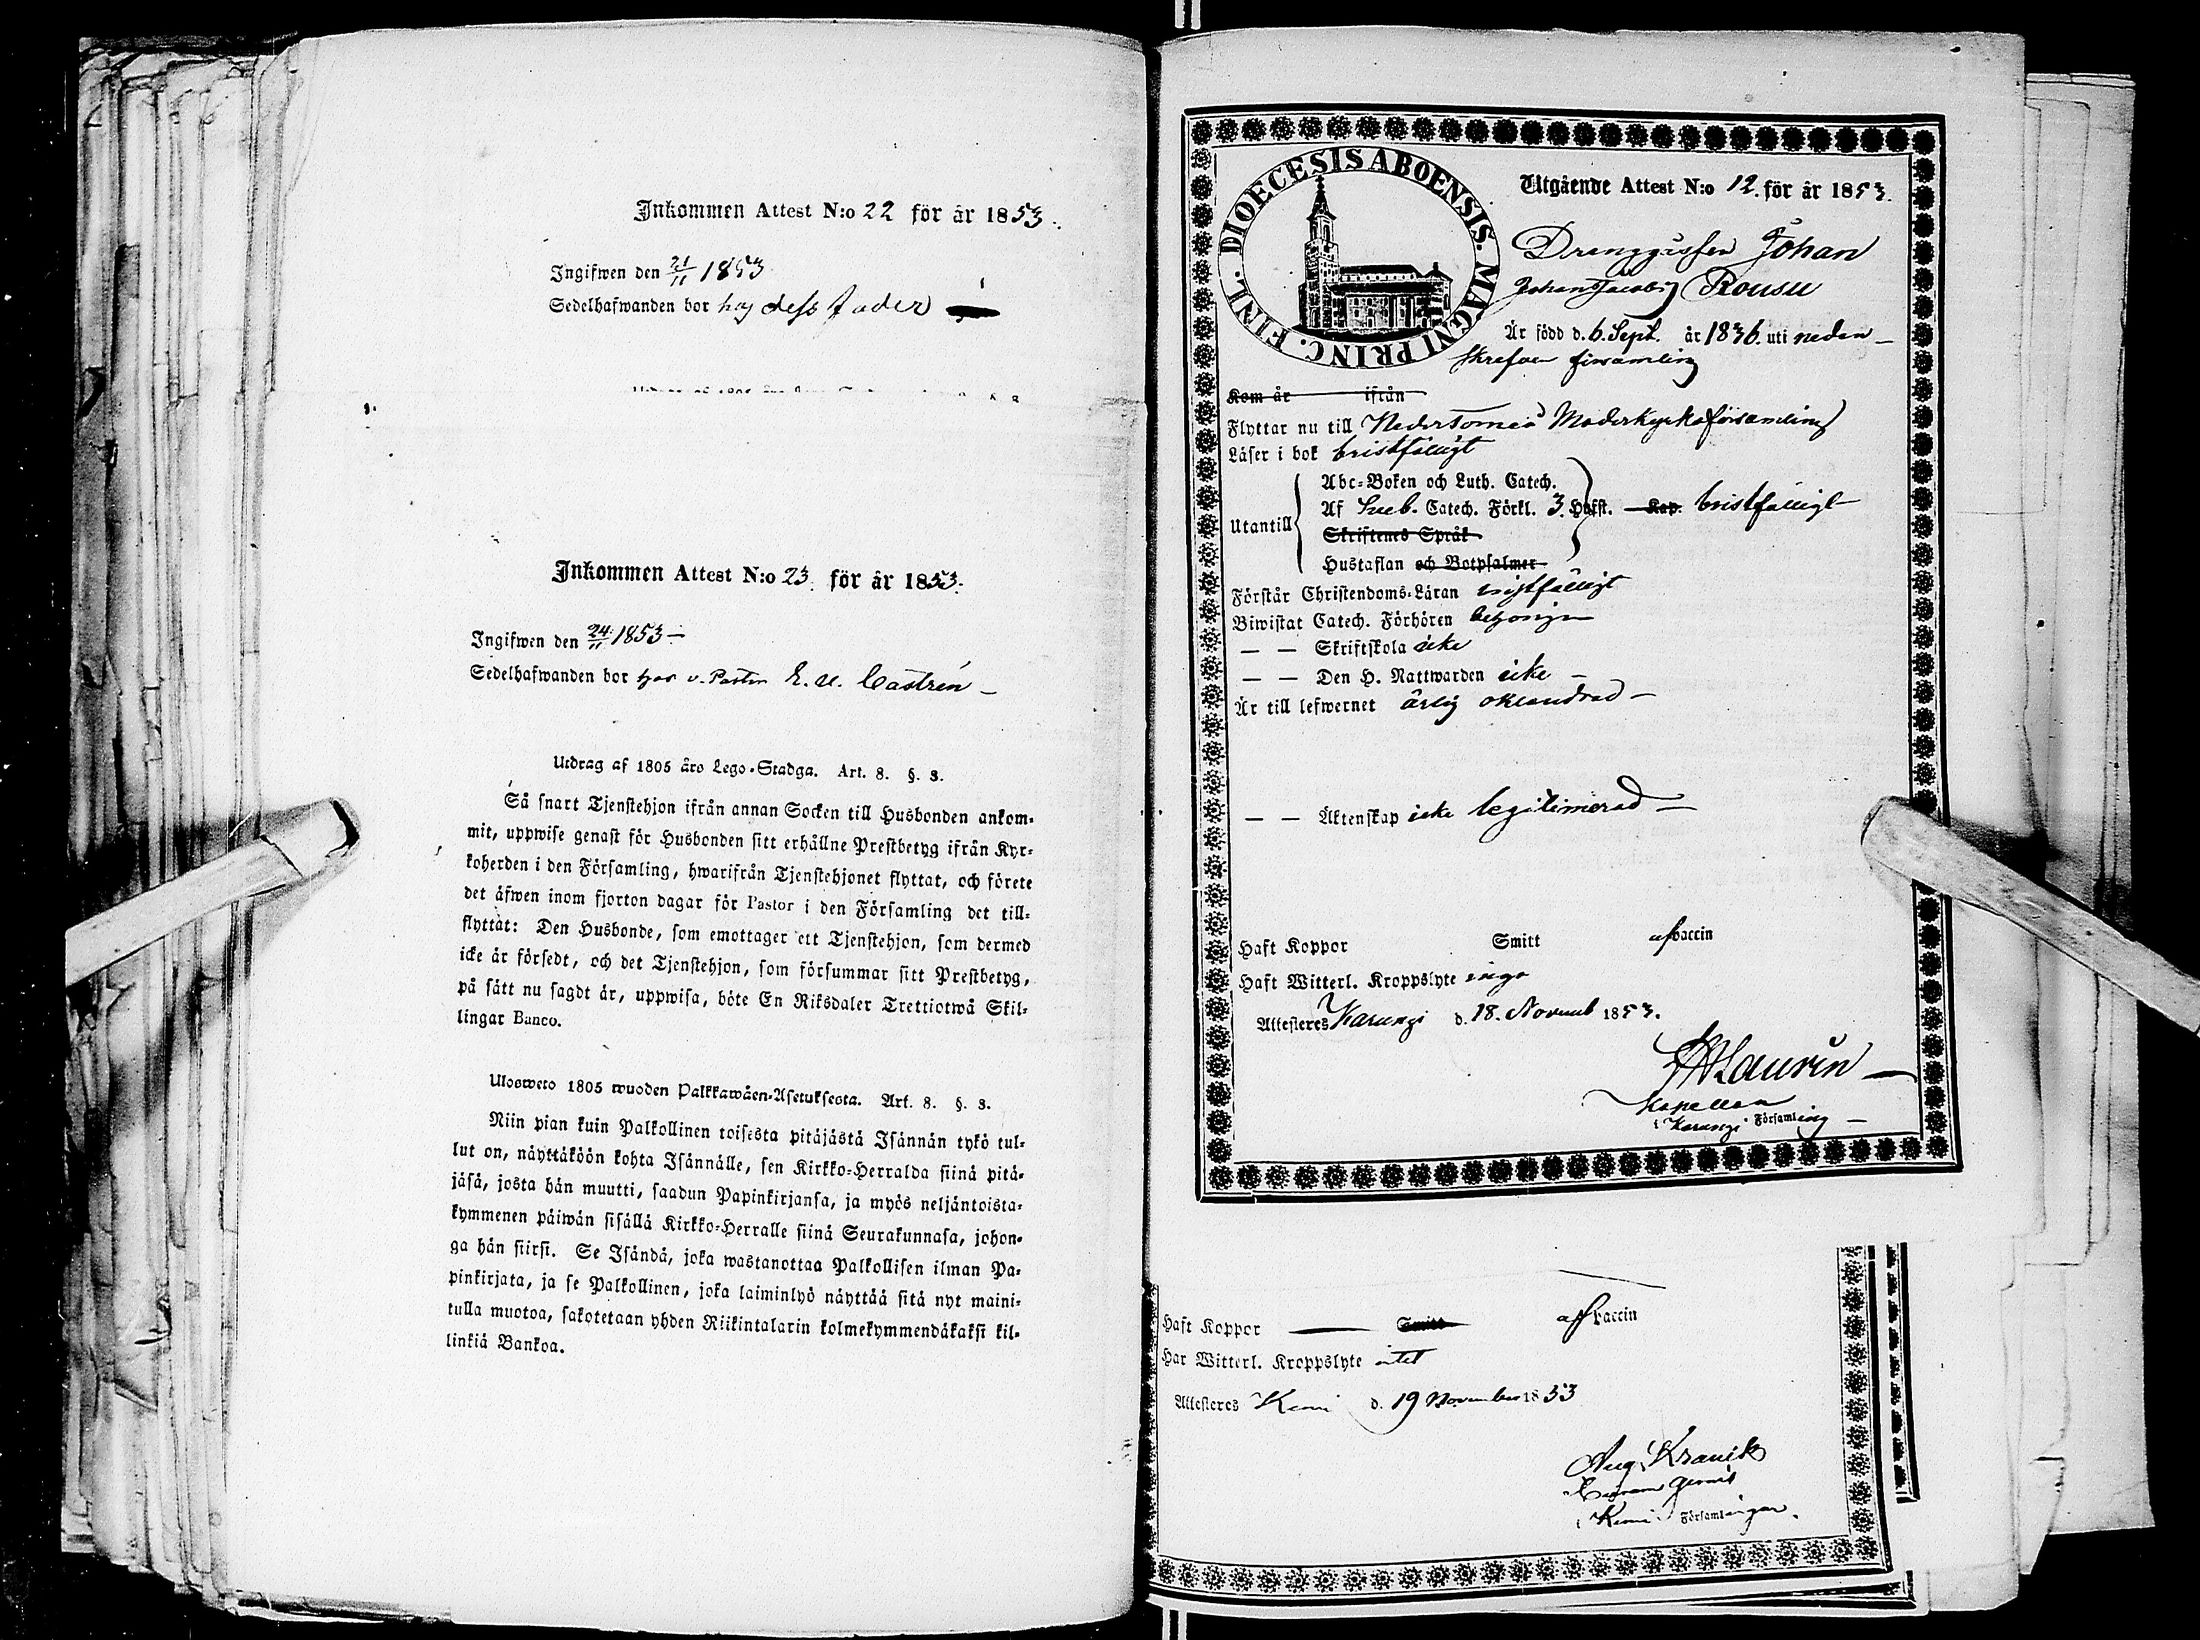 Inkommen Attest N:o 22 för år 1853.
Ingifwen den 21/11 1853
Sedelhafwanden bor hos dess fader
Inkommen Attest N:o 23 för år 1853.
Ingifwen den 24/11 1853 —
Sedelhafwanden bor hos v. Pastor E. U. Castrén —
Utdrag af 1805 års Lego-Stadga. Art. 8. §. 3.
Så snart Tjenstehjon ifrån annan Socken till Husbonden ankom-
mit, uppwise genast för Husbonden sitt erhållne Prestbetyg ifrån Kyr-
koherden i den Församling, hwarifrån Tjenstehjonet flyttat, och förete
det äfwen inom fjorton dagar för Pastor i den Församling det till-
flyttat: Den Husbonde, som emottager ett Tjenstehjon, som dermed
icke är försedt, och det Tjenstehjon, som försummar sitt Prestbetyg,
på sätt nu sagdt är, uppwisa, böte En Riksdaler Trettiotwå Skil-
lingar Banco.
Ulosweto 1805 wuoden Palkkawäen-Asetuksesta. Art. 8. §. 3.
Niin pian kuin Palkollinen toisesta pitäjästä Isännän tykö tul-
lut on, näyttäköön kohta Isännälle, sen Kirkko-Herralda siinä pitä-
jäsä, josta hän muutti, saadun Papinkirjansa, ja myös neljäntoista-
kymmenen päiwän sisällä Kirkko-Herralle siinä Seurakunnasa, johon-
ga hän siirsi. Se Isändä, joka wastanottaa Palkollisen ilman Pa-
pinkirjata, ja se Palkollinen, joka laiminlyö näyttää sitä nyt maini-
tulla muotoa, sakotetaan yhden Riikintalarin kolmekymmendäkaksi kil-
linkiä Bankoa.
DIOECESIS ABOENSIS. MAGNI PRINC. FINL.
Utgående Attest N:o 12. för år 1853.
Drenggåssen Johan
Johan Jacobss. Rousu
Är född d. 6. Sept. år 1836. uti neden-
skrefven församling
Kom år ifrån
Flyttar nu till Nedertorneå Moderkyrkoförsamling
Läser i bok bristfälligt
Utantill
Abc-Boken och Luth. Catech.
Af Sveb. Catech. Förkl. 3. Hufst. Kap. bristfälligt
Skriftenes Språk
Hustaflan och Botpsalmer
Förstår Christendoms-Läran bristfälligt
Biwistat Catech. Förhören
— — Skriftskola icke
— — Den H. Nattwarden icke —
Är till lefwernet ärlig oklandrad —
— — Äktenskap icke legitimerad —
Haft Koppor Smitt af vaccin
Haft Witterl. Kroppslyte inga
Attesteres Karungi d. 18. Novemb 1853.
Laurin —
Kapellan
i Karungi Församling —
Haft Koppor — Smitt af vaccin
Har Witterl. Kroppslyte intet
Attesteres Kemi d. 19 November 1853
Aug. Kranck
i Kemi Församlingar.